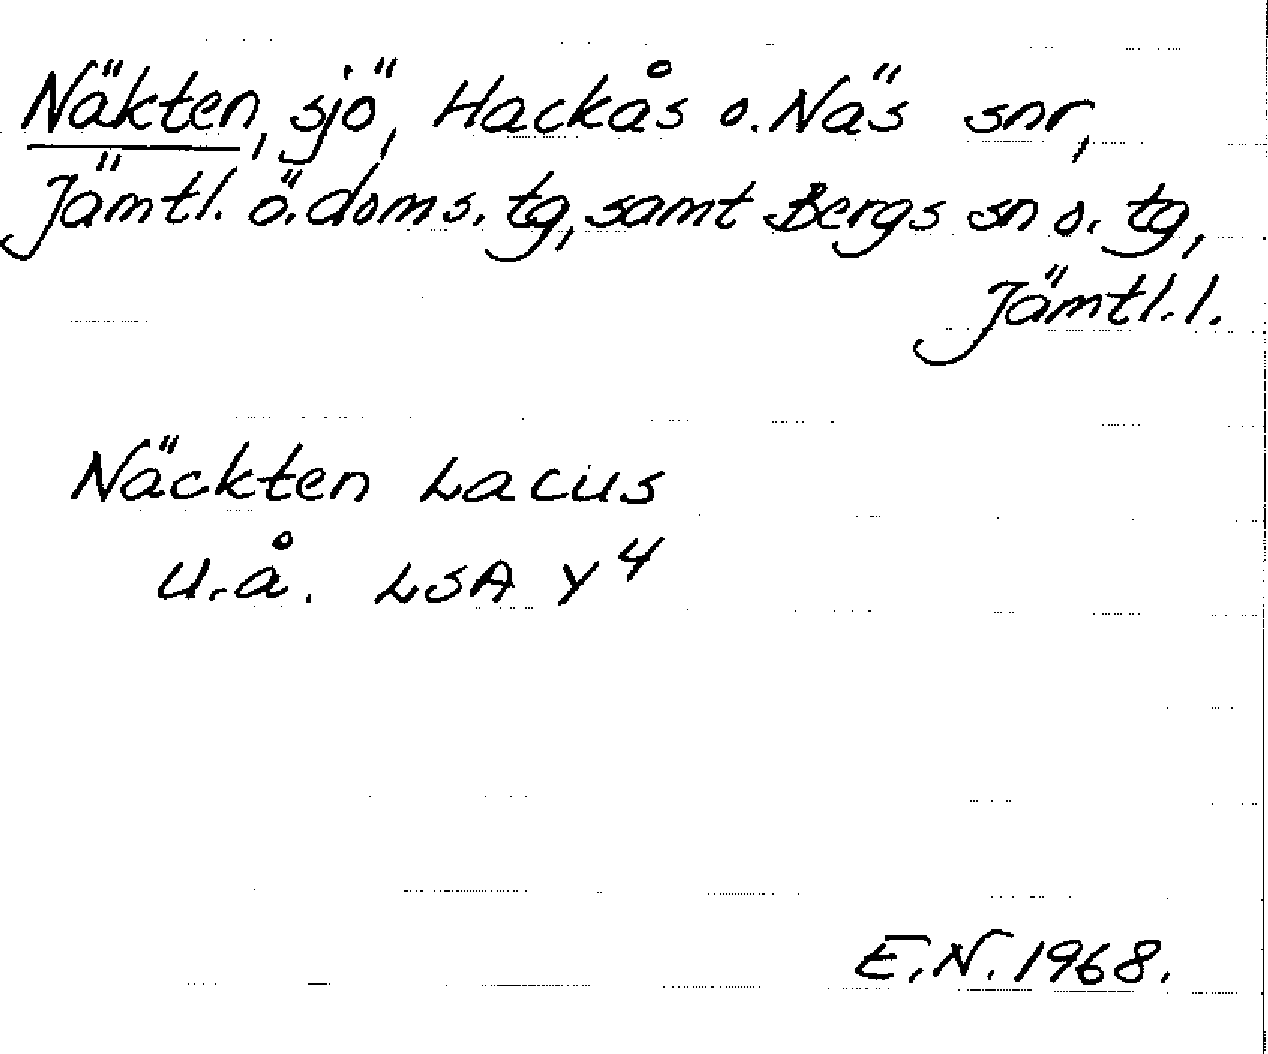 Näkten, sjö, Hackås o. Näs snr,
Jämtl. ö. doms. tg, samt Bergs sn o. tg,
Jämtl. l.
Näckten Lacus
u.å. LSA Y4
E.N. 1968.